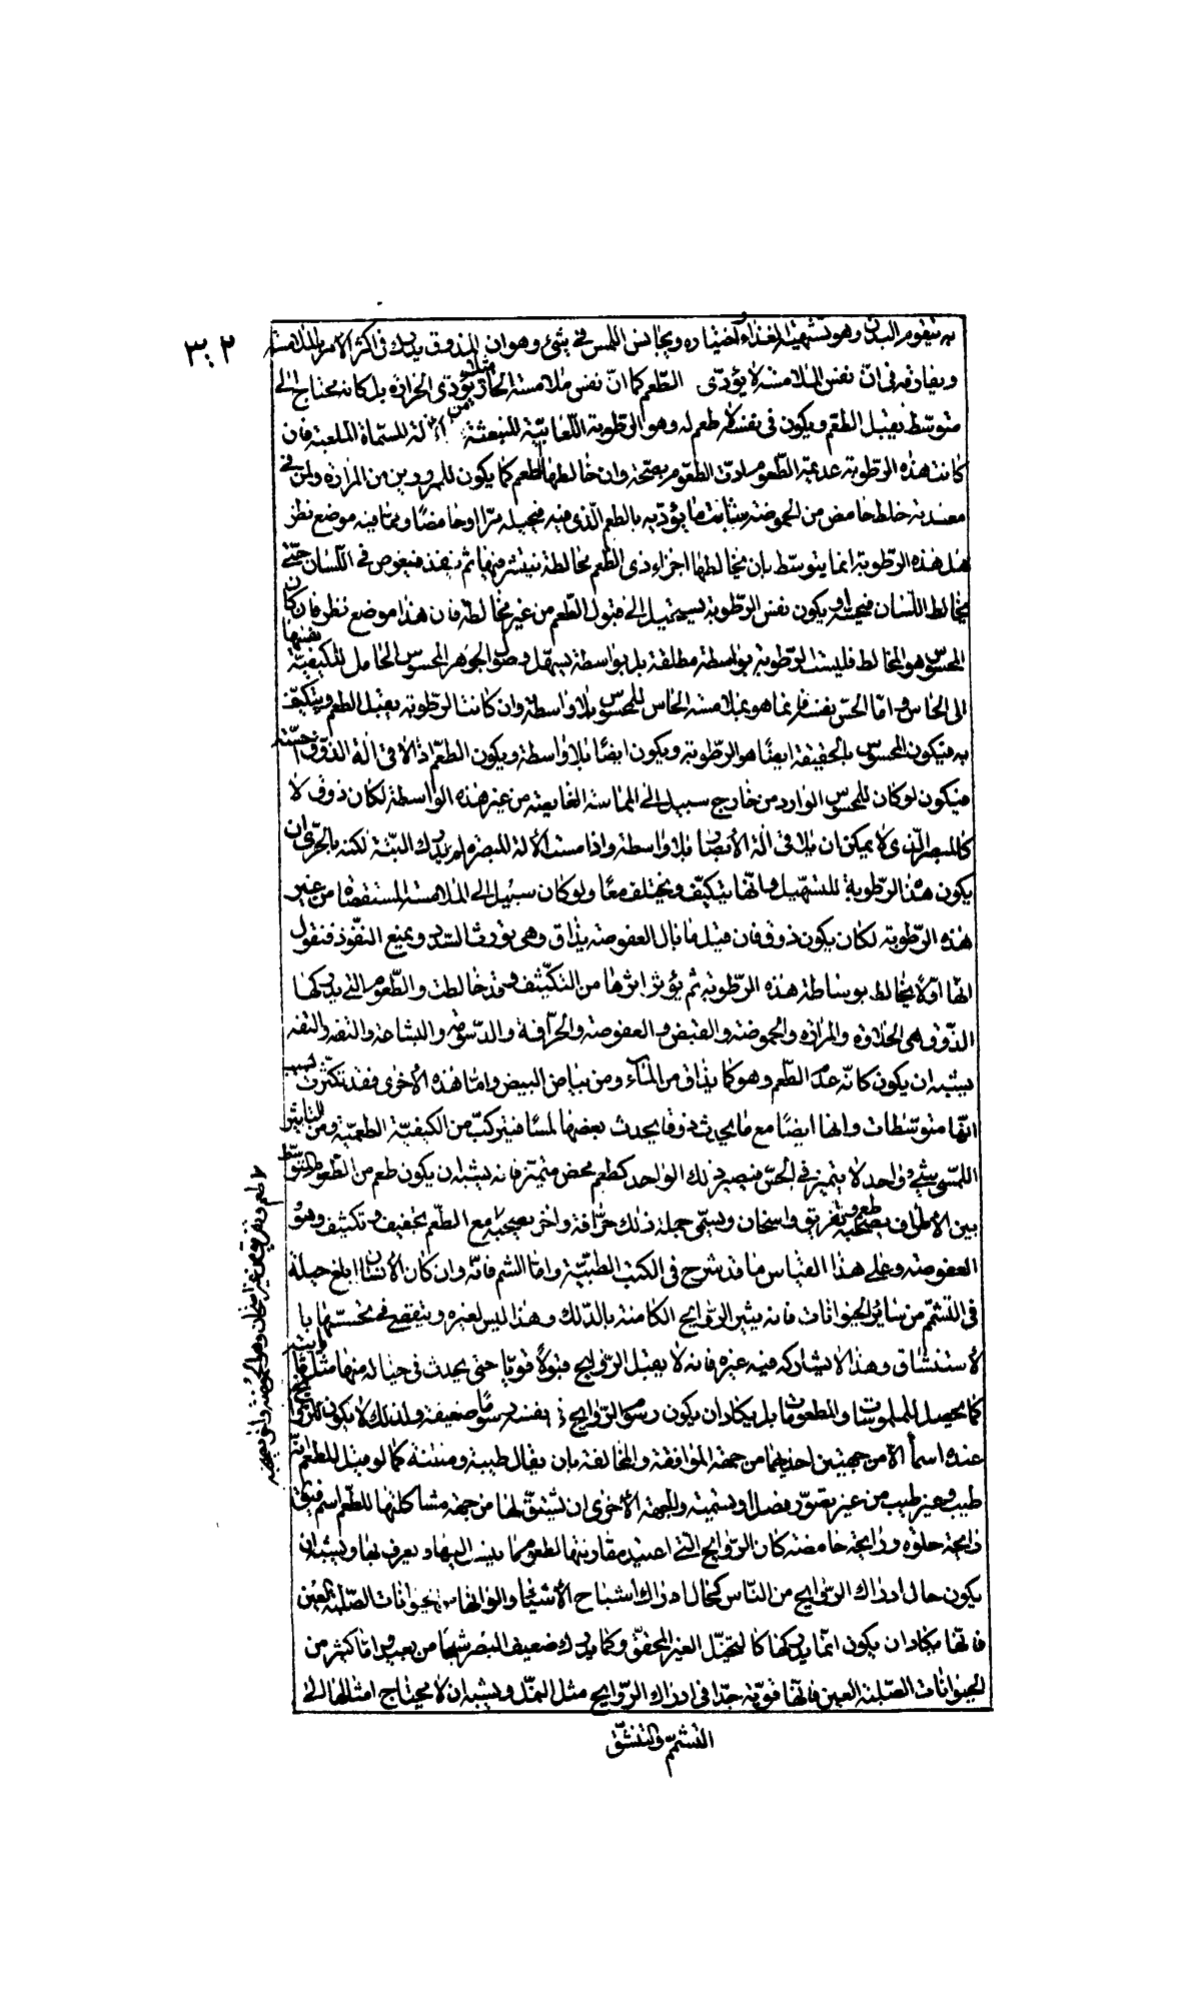 ٣٠٢
به يتقوم البدن وهو تشهية الغذاء واختياره ويجانس اللمس في شئ وهو ان المذوق يدرك في اكثر الامر بالملامسة
ويفارقه في انّ نفس الملامسة لا يؤدّى الطّعم كما انّ نفس ملامسة الحارّ مثلا يؤدّى الحرارة بل كانه محتاج الى
متوسّط يقبل الطّعم ويكون في نفسه لا طعم له وهو الرّطوبة اللّعابيّة المنبعثة من الآلة المسمّاة الملعبة فان
كانت هذه الرّطوبة عديمة الطّعوم ادّت الطّعوم بصحّة وان خالطها طعم كما يكون للممرورين من المرارة ولمن في
معدته خلط حامض من الحموضة شابت ما يؤدّيه بالطعم الّذى فيه فيحيله مرّا او حامضًا وممّا فيه موضع نظر
هل هذه الرّطوبة انما يتوسّط بان يخالطها اجزاء ذى الطّعم مخالطة ينتشر فيها ثم ينفذ فيغوص في اللّسان حتّى
يخالط اللّسان فيحسّه او يكون نفس الرّطوبة يستحيل الى قبول الطّعم من غير مخالطة فان هذا موضع نظر فان كان
المحسوس هو المخالط فليست الرّطوبة بواسطة مطلقة بل بواسطة يسهّل وصول الجوهر المحسوس الحامل للكيفيّة نفسها
الى الحاس وامّا الحسّ نفسه فانما هو بملامسة الحاس للمحسوس بلا واسطة وان كانت الرّطوبة يقبل الطّعم ويتكيّف
به فيكون المحسوس بالحقيقة ايضًا هو الرّطوبة ويكون ايضًا بلا واسطة ويكون الطّعم اذا لاقى آلة الذّوق احسّته
فيكون لو كان للمحسوس الوارد من خارج سبيل الى المماسّة الغايصة من غير هذه الواسطة لكان ذوق لا
كالمبصر الّذى لا يمكن ان يلاقى آلة الأبصار بلا واسطة واذا مست الآلة المبصرة لم يدرك البتّة لكنه بالحرّى ان
يكون هذه الرّطوبة للتسّهيل وانّها يتكيّف ويختلف معًا ولو كان سبيل الى الملامسة المستقصاة من غير
هذه الرّطوبة لكان يكون ذوق فان قيل ما بال العفوصة يذاق وهى يورث السّدد ويمنع النّفوذ فنقول
انها اوّلا يخالط بوساطة هذه الرّطوبة ثم يؤثر اثرها من التكثيف وقد خالطت والطّعوم التى يدركها
الذّوق هى الحلاوة والمرارة والحموضة والقبض والعفوصة والحرافة والدّسومة والبشاعة والتفه والتفه
يشبه ان يكون كانّه عدم الطّعم وهو كما يذاق من الماء ومن بياض البيض وامّا هذه الأخرى فقد تكثّرت بسبب
انّها متوسّطات وانها ايضًا مع ما يحدث ذوقا يحدث بعضها لمسًا فيتركّب من الكيفيّة الطعميّة ومن التأثير
اللّمسى شئ واحد لا يتميز في الحسّ فيصير ذلك الواحد كطعم محض متميّز فانه يشبه ان يكون طعم من الطّعوم المتوسّط
بين الأطراف يصحبه طعم وتفريق واسخان ويسمّى جملة ذلك حرّافة وآخر يصحبه مع الطّعم تجفيف وتكثيف وهو
العفوصة وعلى هذا القياس ما قد شرح في الكتب الطبّيّة وامّا الشم فانّه وان كان الأنسان ابلغ حيلة
في التّشمّم من سائر الحيوانات فانه يثير الرّوايح الكامنة بالدّلك وهذا ليس لغيره ويتقصّى في تحسّسها با
لأستنشاق وهذا الا يشاركه فيه غيره فانه لا يقبل الرّوايح قبولا قويّا حتى يحدث في خياله منها مثل ثابتة
كما يحصل للملموسات والمطعومات بل يكاد ان يكون رسوم الرّوايح في نفسه رسومًا ضعيفة ولذلك لا يكون للرّوايح
عنده اسمآ الا من جهتين احديهما من جهة الموافقة والمخالفة بان يقال طيبة ومنتنة كما لو قيل للطعم انّه
طيب وغير طيب من غير تصوّر فصل او تسمية والجهة الأخرى ان يشتقّ لها من جهة مشاكلتها للطّعم اسم فيقال
رايحة حلوة ورايحة حامضة كان الرّوايح التى اعتيد مقارنتها لطعوم ما ينسب اليها ويعرف بها ويشبه ان
يكون حال ادراك الرّوايح من النّاس كحال ادراك اشباح الأشياء والوانها من الحيوانات الصّلبة العين
فانّها يكاد ان يكون انّما يدركها كالتخيّل الغير المحقّق وكما يدرك ضعيف البصر شبحًا من بعيد وامّا كثير من
الحيوانات الصّلبة العين فانّها قويّة جدّا في ادراك الرّوايح مثل النمّل ويشبه ان لا يحتاج امثالها الى
التشمّم والتنشّق
لا طعم وتفريق من غير اسخان وهو الحموضة وآخر يصحبه